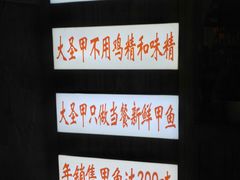 大圣甲不用鸡精和味精
大圣甲只做当餐新鲜甲鱼
年销售甲鱼达200